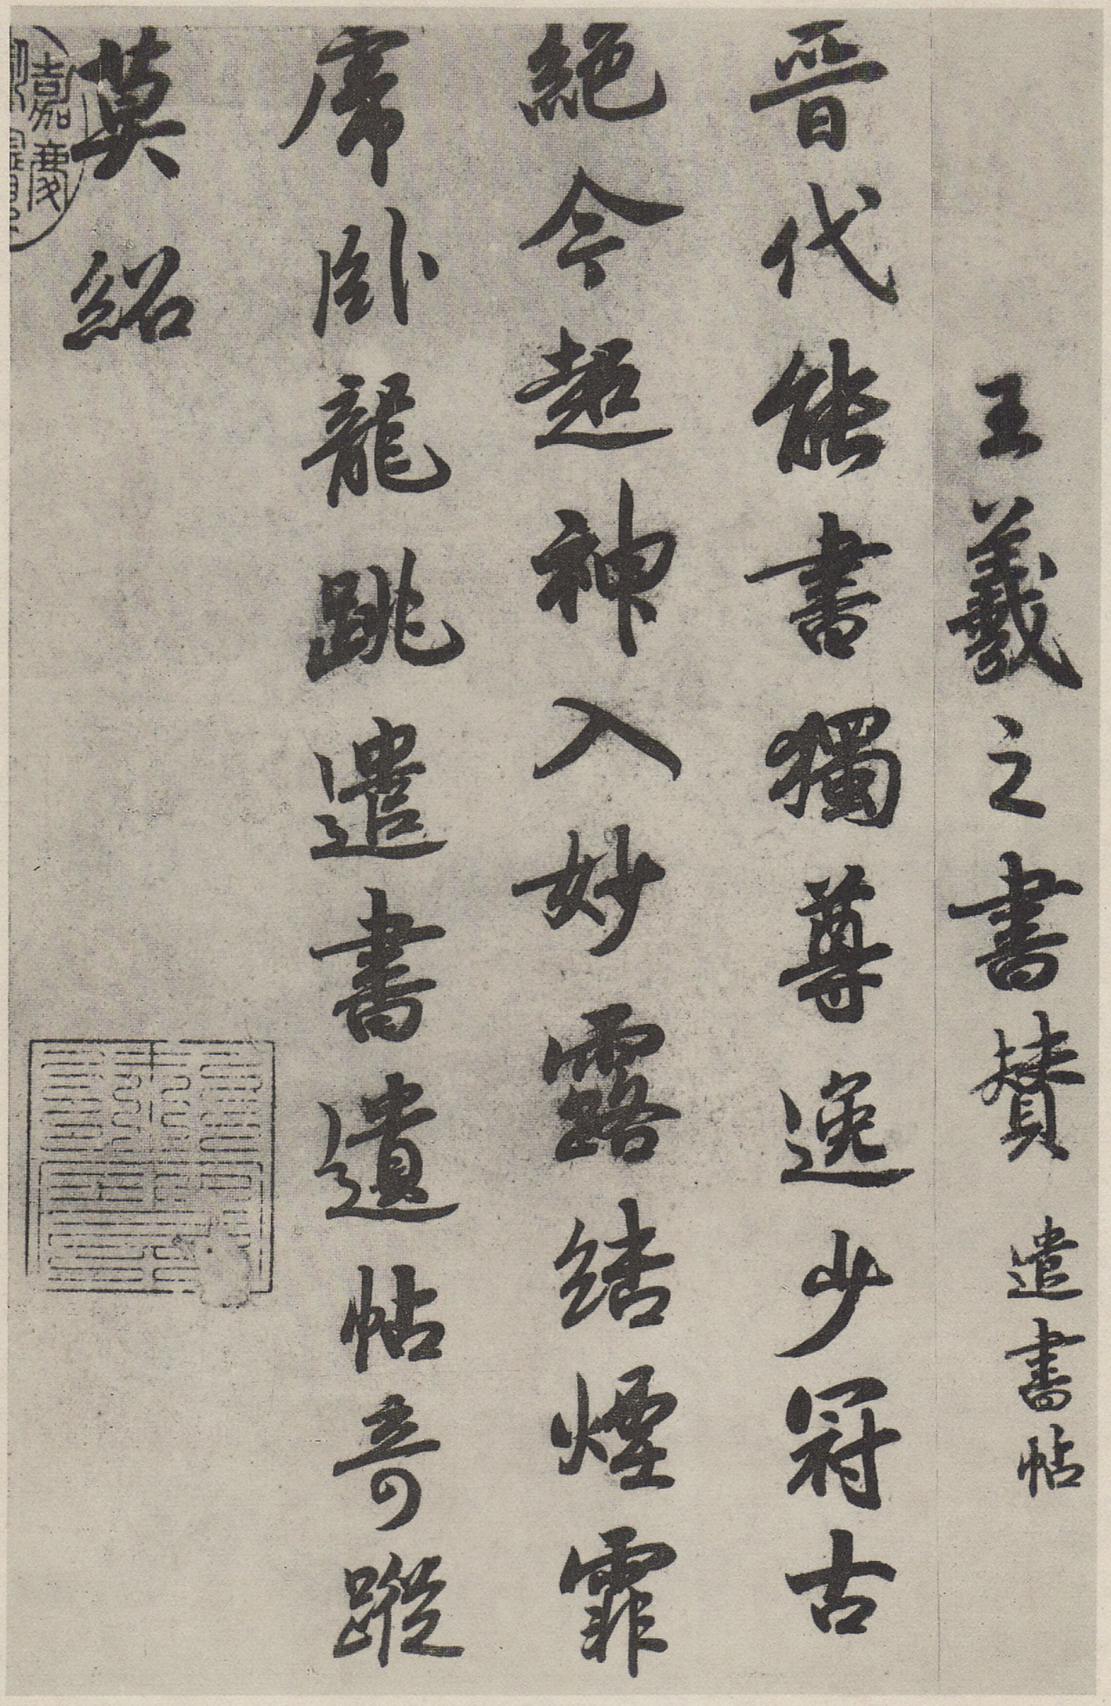 王羲之書贊 遣書帖
晉代能書獨尊逸少冠古
絕今超神入妙露結煙霏
席卧龍跳遣書遺帖奇蹤
莫紹
嘉慶